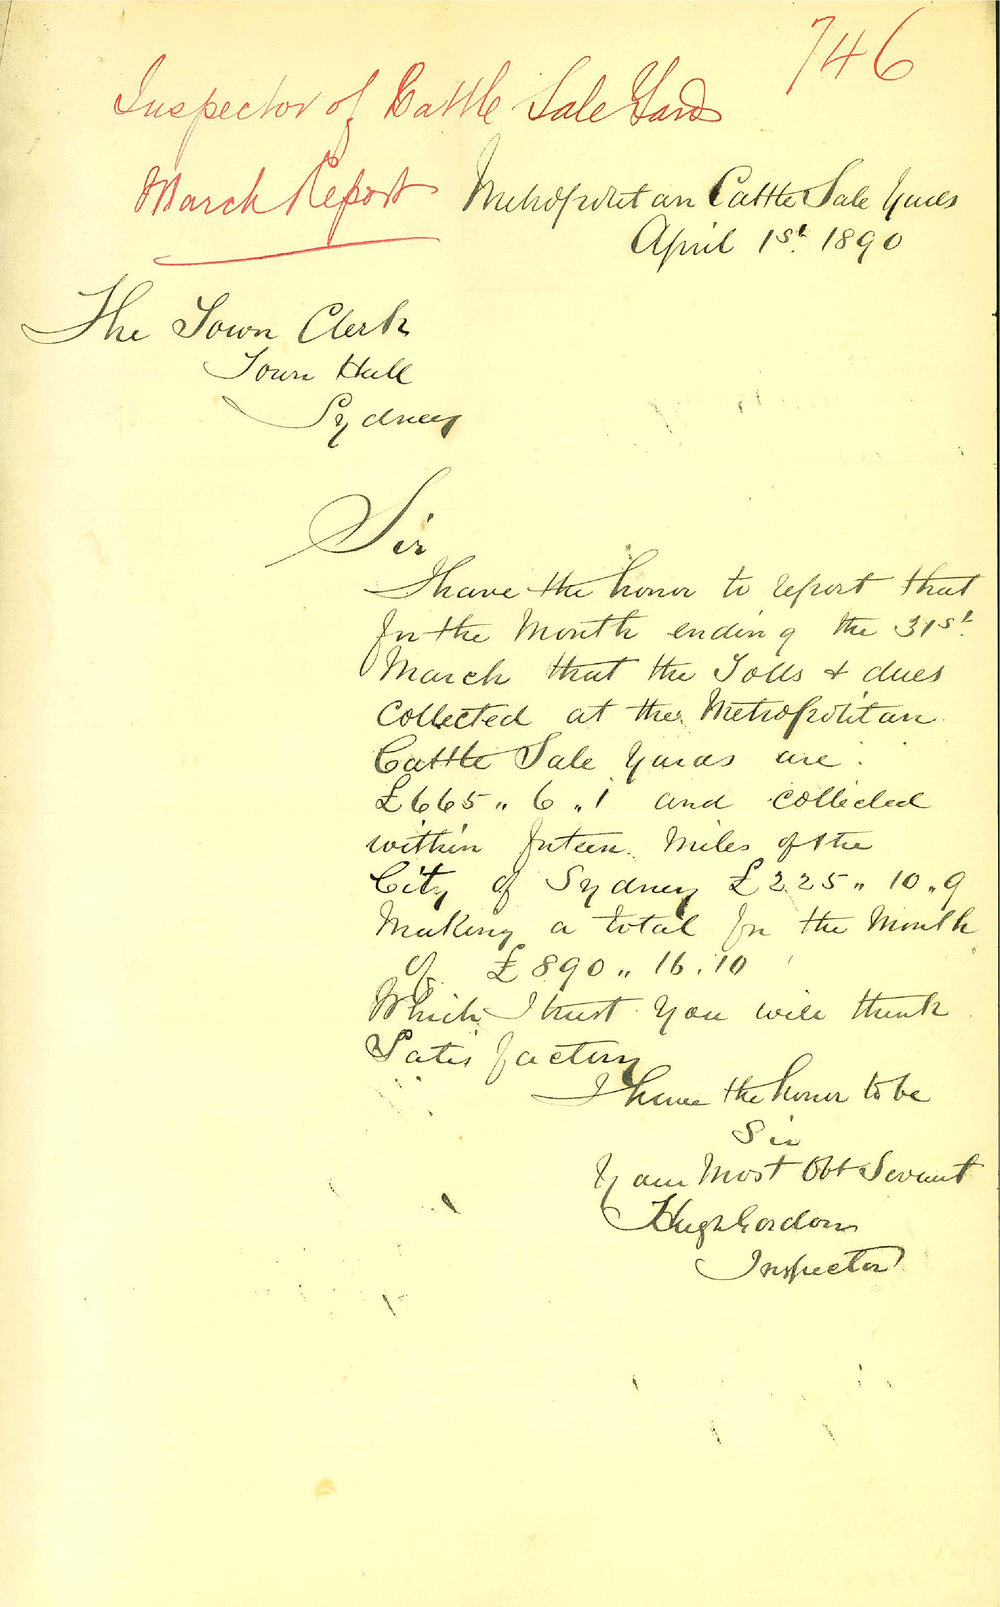 746
Inspector of Cattle Sale Yards
March Report
Metropolitan Cattle Sale Yards
April 1st. 1890
The Town Clerk
Town Hall
Sydney
Sir
I have the honor to report that
for the Month ending the 31st.
March that the Tolls + dues
Collected at the Metropolitan
Cattle Sale Yards are.
£665 " 6 " 1 and collected
within fifteen Miles of the
City of Sydney £225 " 10 " 9
Making a total for the Month
of £890 " 16 . 10
Which I trust you will think
Satisfactory
I have the honor to be
Sir
Your Most Obt Servant
Hugh Gordon
Inspector